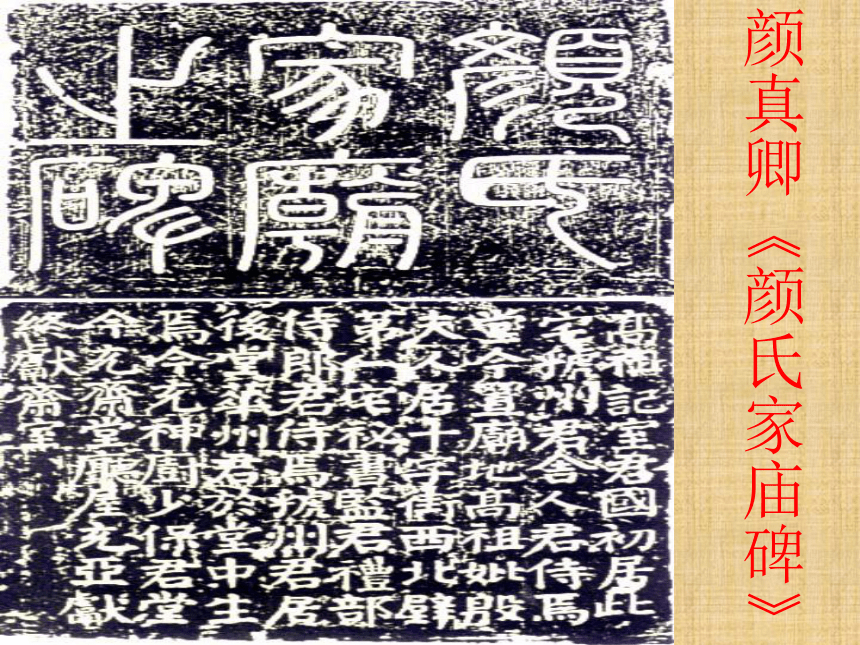 顏氏
家廟
之碑
高祖記室君國初居此
宅虢州君舍人君侍焉
堂今置廟地高祖妣殷
夫人居十字街西北壁
第一宅祕書監君禮部
侍郎君侍焉虢州君居
後堂華州君於堂中生
焉今充神廚少保君堂
今充齋堂廳屋充亞獻
終獻齋室
颜真卿《颜氏家庙碑》